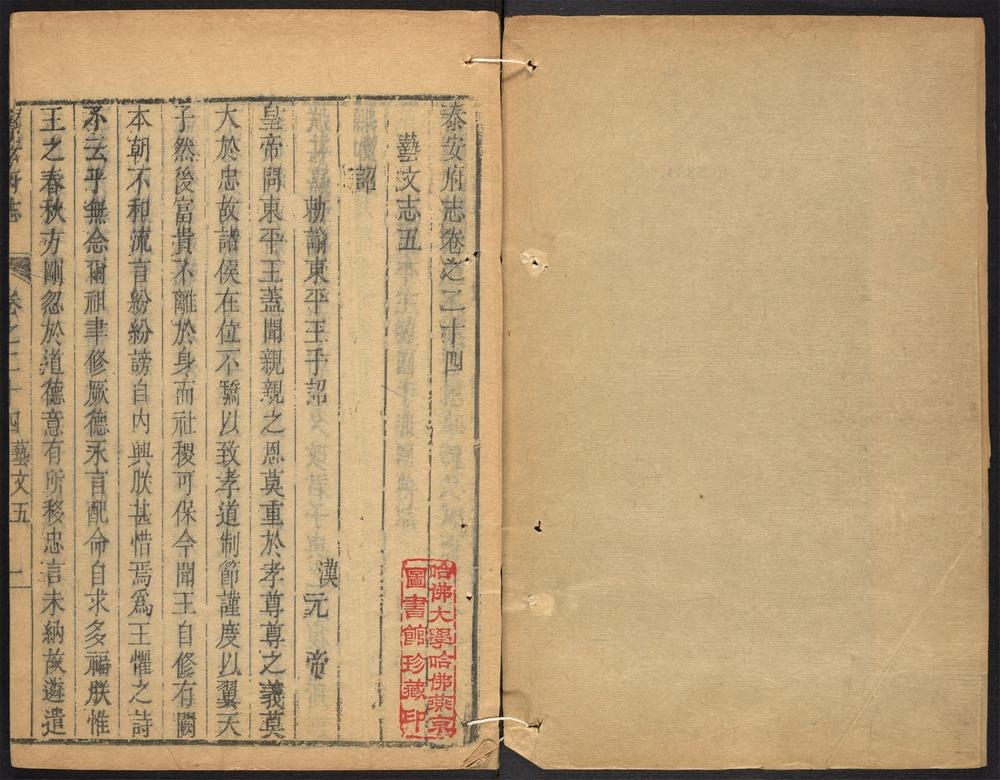 泰安府志卷之二十四
藝文志五
詔
勅諭東平王宇詔 漢元帝
皇帝問東平王蓋聞親親之恩莫重於孝尊尊之義莫
大於忠故諸侯在位不驕以致孝道制節謹度以翼天
子然後富貴不離於身而社稷可保今聞王自修有闕
本朝不和流言紛紛謗自內興朕甚憯焉為王懼之詩
不云乎無念爾祖聿修厥德永言配命自求多福朕惟
王之春秋方剛忽於道德意有所移忠言未納故遴遣
卷之二十四 藝文五 一
哈佛大學哈佛燕京
圖書館珍藏印